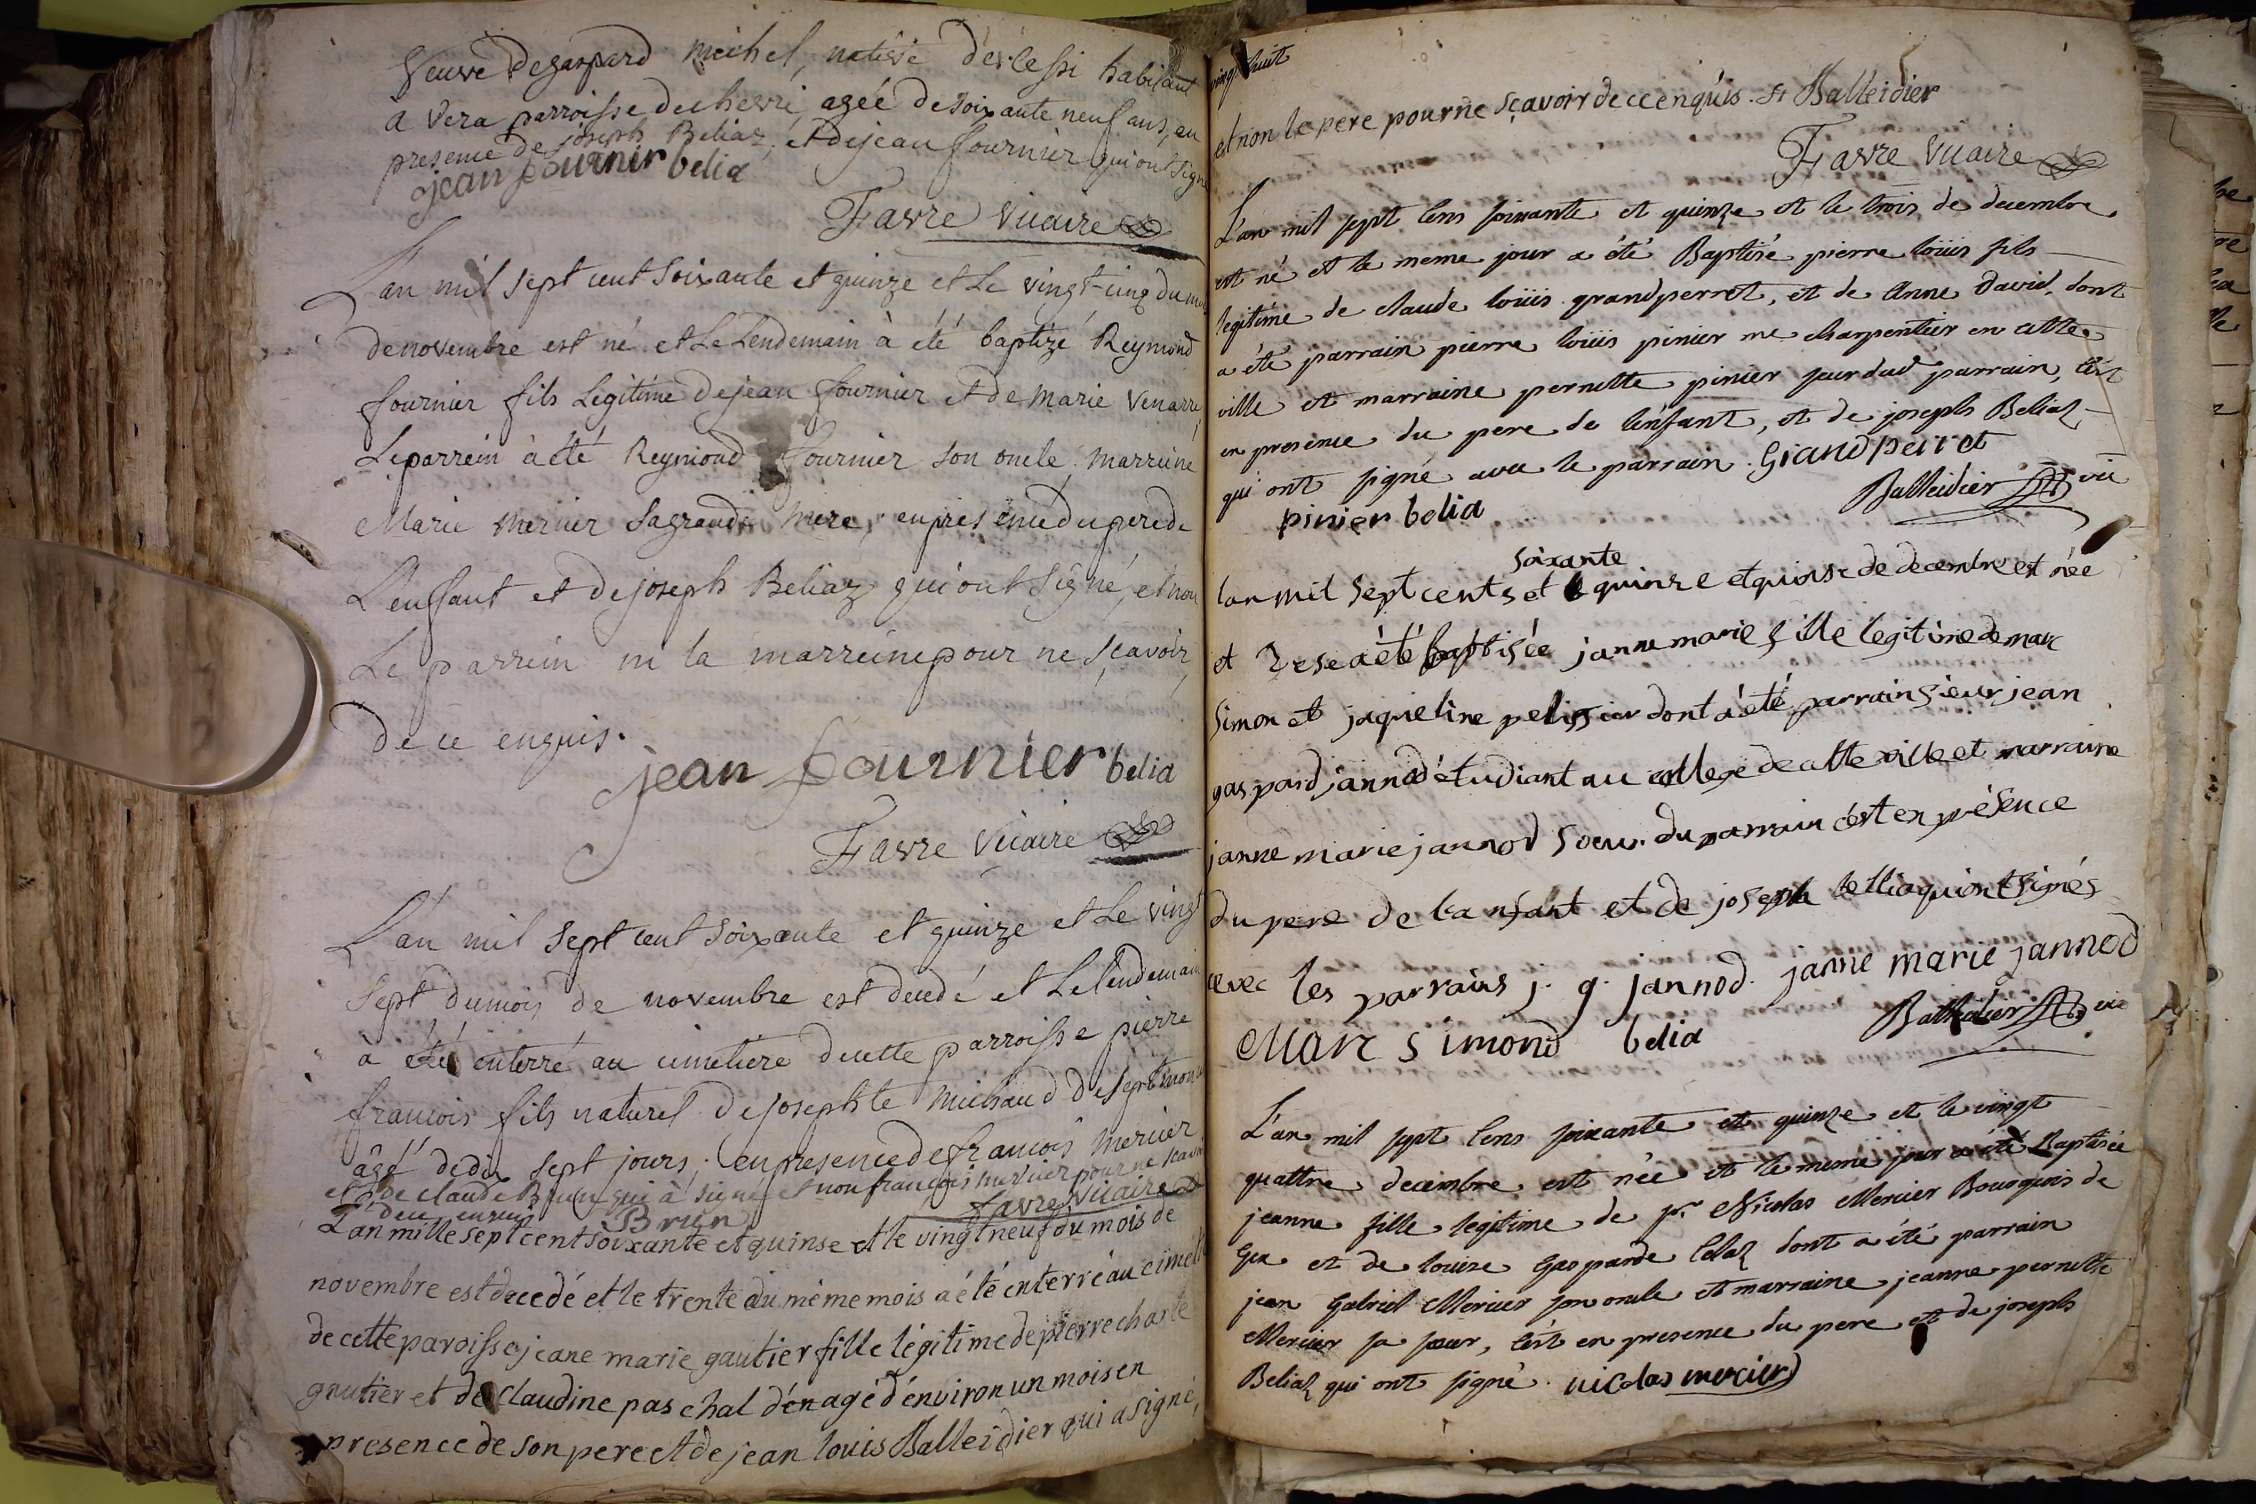 Veuve de gaspard michel, natisve d'ésléssi habitant
à Vera parroisse de chevri, agéé de soixante neuf ans, en
presence de joseph Beliaz, et de jean fournier qui ont signé
jean fournir belia
Favre Vicaire
L'an mil sept cent soixante et quinze et Le vingt-cinq du mois
de novembre est né et Le Lendemain à été baptizé Reymond
fournier fils Legitime de jean fournier et de marie Venarre,
Le parrein à été Reymond fournier son oncle marreine
Marie mernier sa grande mere, en presence du pere de
L'enfant et de joseph Beliaz qui ont signé, et non
Le parrein ni la marreine pour ne sçavoir
de ce enquis.
jean fournier belia
Favre Vicaire
L'an mil sept cent soixante et quinze et Le vingt
sept du mois de novembre est decedé et Le lendemain
à été enterré au cimetiere de cette parroisse pierre
francois fils naturel de josephte michaud de septmon
âgé de dix sept jours, en presence de francois mernier
et de claude Brun qui à signé et non francois mernier pour ne scavoir
de ce enquis Brun Favre Vicaire
L'an mille sept cent soixante et quinse et le vingt neuf du mois de
novembre est decedé et le trente du même mois a été enterré au cimet
de cette paroisse jeane marie gautier fille légitime de pierre charle
gautier et de Claudine paschal d'én agé d'énviron un mois en
presence de son pere et de jean louis Balleidier qui a signé,
vingt huit
et non le pere pour ne sçavoir de ce enquis. Balleidier
Favre Vicaire
L'an mil sept cens soixante et quinze et le trois de decembre
est né et le meme jour a été Baptisé pierre loüis fils
legitime de claude loüis grandperret, et de Anne David, dont
a été parrain pierre loüis pinier me charpentier en cette
ville et marraine pernette pinier sœur dud parrain, c'ést
en presence du pere de l'énfant, et de joseph Beliaz
qui ont signé avec le parrain. Grandperret
pinier belia Balleidier vic
soixante
lan mil sept cents et quinze et quinse de decembre est née
et a été baptisée janne marie fille legitime de marc
simon et jaqueline pelissier dont a été parrain sieur jean
gaspard jannod étudiant au college de cette ville et marraine
janne marie jannod soeur du parrain cést en présence
du pere de l'anfant et de joseph bellia qui ont signés
avec les parrains j. g. jannod. janne marie jannod
Marc simond belia Balleidier vic
L'an mil sept cens soixante et quinze et le vingt
quattre decembre est née et le meme jour a été Baptisée
jeanne fille legitime de sr Nicolas Mercier Bourgeois de
Gex et de louize Gasparde lelaz dont a été parrain
jean Gabriel Mercier son oncle et marraine jeanne pernette
Mercier sa sœur, c'ést en presence du pere et de joseph
Beliaz qui ont signé. nicolas mercier